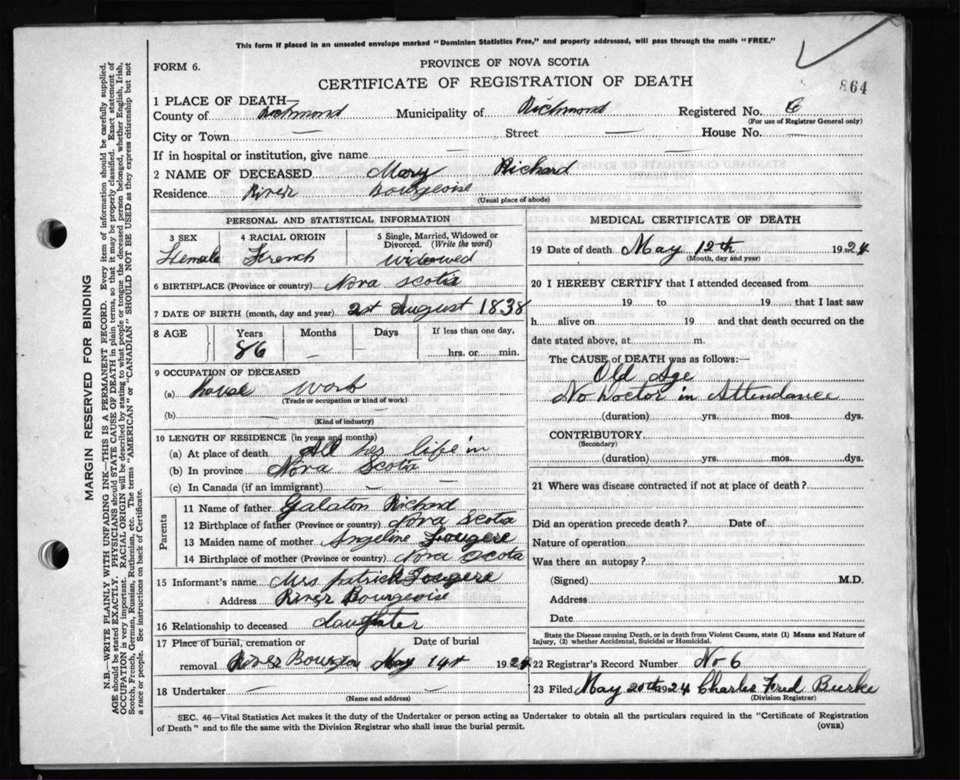 This form if placed in an unsealed envelope marked "Dominion Statistics Free," and properly addressed, will pass through the mails "FREE."
FORM 6.
PROVINCE OF NOVA SCOTIA
CERTIFICATE OF REGISTRATION OF DEATH
864
1 PLACE OF DEATH—
County of Richmond Municipality of Richmond Registered No. 6
(For use of Registrar General only)
City or Town — Street — House No. —
If in hospital or institution, give name —
2 NAME OF DECEASED Mary Richard
Residence River Bourgeoise
(Usual place of abode)
PERSONAL AND STATISTICAL INFORMATION
3 SEX 4 RACIAL ORIGIN 5 Single, Married, Widowed or Divorced. (Write the word)
Female French Widowed
6 BIRTHPLACE (Province or country) Nova Scotia
7 DATE OF BIRTH (month, day and year) August 1838
8 AGE Years Months Days If less than one day,
86 — — hrs. or min.
9 OCCUPATION OF DECEASED
(a) house work
(Trade or occupation or kind of work)
(b) —
(Kind of industry)
10 LENGTH OF RESIDENCE (in years and months)
(a) At place of death All her life in
(b) In province Nova Scotia
(c) In Canada (if an immigrant) — —
Parents
11 Name of father Galaton Richard
12 Birthplace of father (Province or country) Nova Scotia
13 Maiden name of mother Angeline Fougere
14 Birthplace of mother (Province or country) Nova Scota
15 Informant's name Mrs patrick Fougere
Address River Bourgeoise
16 Relationship to deceased daughter
17 Place of burial, cremation or removal Date of burial
River May 14 1924
18 Undertaker — —
(Name and address)
MEDICAL CERTIFICATE OF DEATH
19 Date of death May 12th 1924
(Month, day and year)
20 I HEREBY CERTIFY that I attended deceased from
19 to 19 that I last saw
h alive on 19 and that death occurred on the
date stated above, at m.
The CAUSE of DEATH was as follows:—
Old Age
No Doctor in Attendance
(duration) yrs. mos. dys.
CONTRIBUTORY
(Secondary)
(duration) yrs. mos. dys.
21 Where was disease contracted if not at place of death?
Did an operation precede death? Date of
Nature of operation
Was there an autopsy?
(Signed) M.D.
Address
Date
State the Disease causing Death, or in death from Violent Causes, state (1) Means and Nature of
Injury, (2) whether Accidental, Suicidal or Homicidal.
22 Registrar's Record Number No 6
23 Filed May 20th 1924 Charles Fred Burke
(Division Registrar)
SEC. 46—Vital Statistics Act makes it the duty of the Undertaker or person acting as Undertaker to obtain all the particulars required in the "Certificate of Registration
of Death" and to file the same with the Division Registrar who shall issue the burial permit.
(OVER)
MARGIN RESERVED FOR BINDING
N.B.—WRITE PLAINLY WITH UNFADING INK—THIS IS A PERMANENT RECORD. Every item of information should be carefully supplied.
AGE should be stated EXACTLY. PHYSICIANS should STATE CAUSE OF DEATH in plain terms, so that it may be properly classified. Exact statement of
OCCUPATION is very important. RACIAL ORIGIN will be described by stating to what people or tongue the deceased person belonged, whether English, Irish,
Scotch, French, German, Russian, Ruthenian, etc. The terms "AMERICAN" or "CANADIAN" SHOULD NOT BE USED as they express citizenship but not
a race or people. See instructions on back of Certificate.